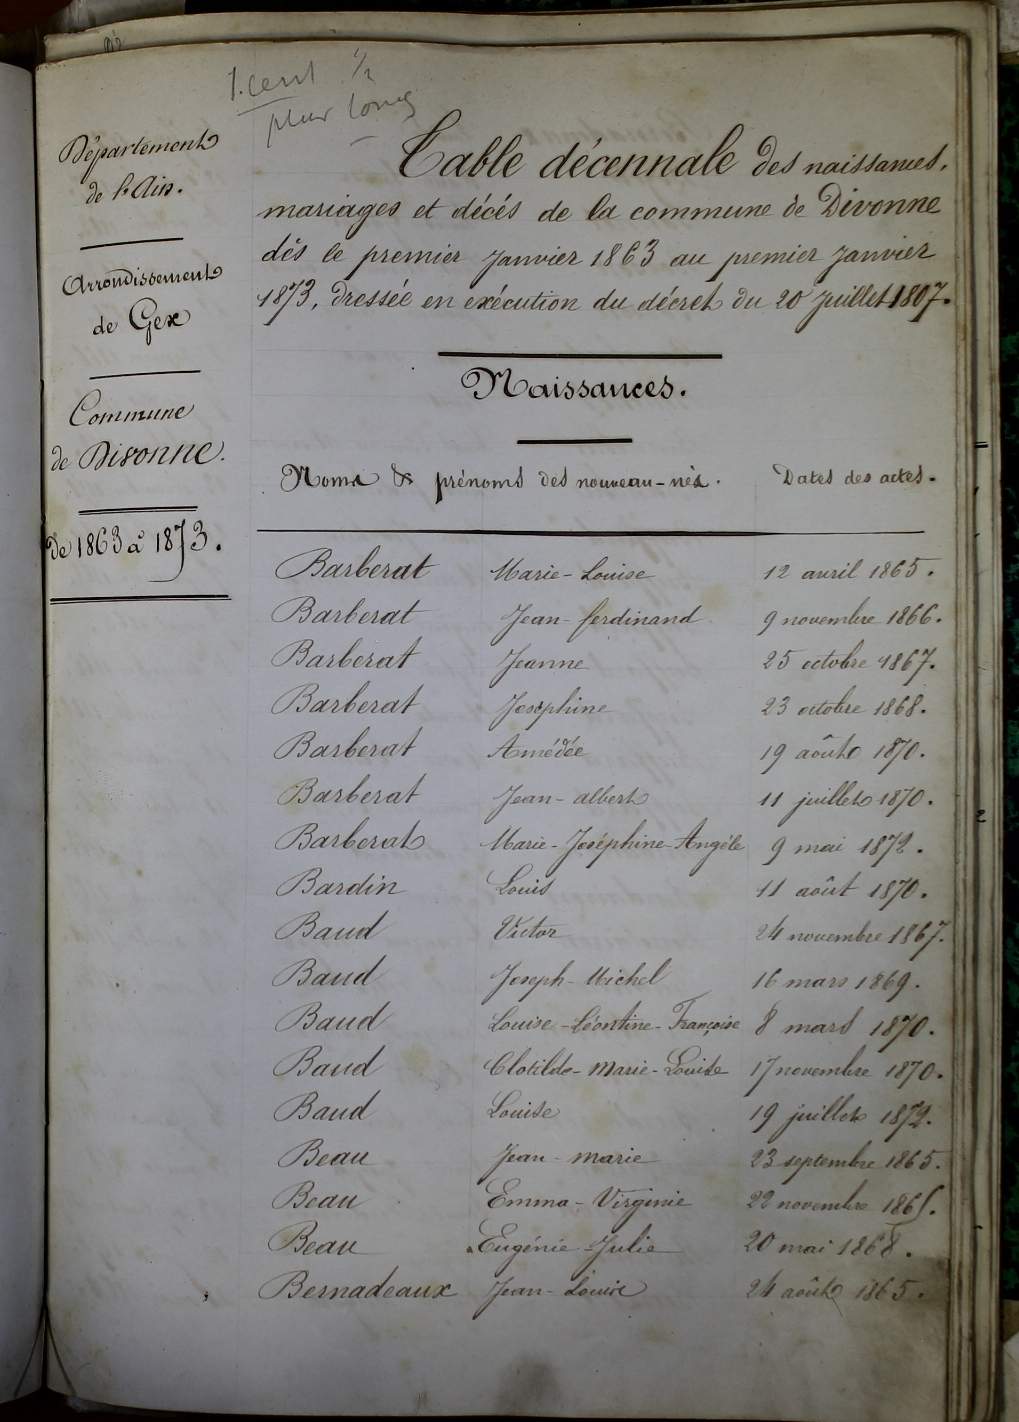 1. cent ½
plus long
Département
de l'Ain.
Arrondissement
de Gex
Commune
de Divonne.
De 1863 à 1873.
Table décennale des naissances,
mariages et décés de la commune de Divonne
dés le premier Janvier 1863 au premier Janvier
1873, dressée en exécution du décret du 20 Juillet 1807.
Naissances.
Noms & prénoms des nouveau-nés. Dates des actes.
Barberat Marie-Louise 12 avril 1865.
Barberat Jean-ferdinand 9 novembre 1866.
Barberat Jeanne 25 octobre 1867.
Barberat Joséphine 23 octobre 1868.
Barberat Amédée 19 août 1870.
Barberat Jean-albert 11 juillet 1870.
Barberat Marie-Joséphine-Angèle 9 mai 1872.
Bardin Louis 11 août 1870.
Baud Victor 24 novembre 1867.
Baud Joseph-Michel 16 mars 1869.
Baud Louise-Léontine-Françoise 8 mars 1870.
Baud Clotilde-Marie-Louise 17 novembre 1870.
Baud Louise 19 juillet 1872.
Beau Jean-marie 23 septembre 1865.
Beau Emma-Virginie 22 novembre 1865.
Beau Eugénie-Julie 20 mai 1868.
Bernadeaux Jean-Louis 24 août 1865.